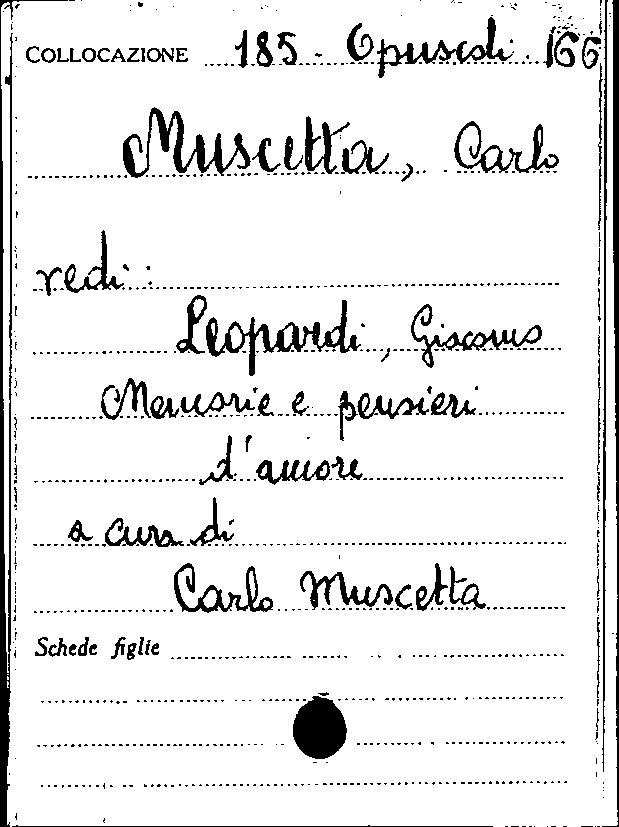 COLLOCAZIONE 185 - Opuscoli. 166
Muscetta, Carlo
vedi:
Leopardi, Giacomo
Memorie e pensieri
d'amore
a cura di
Carlo Muscetta
Schede figlie